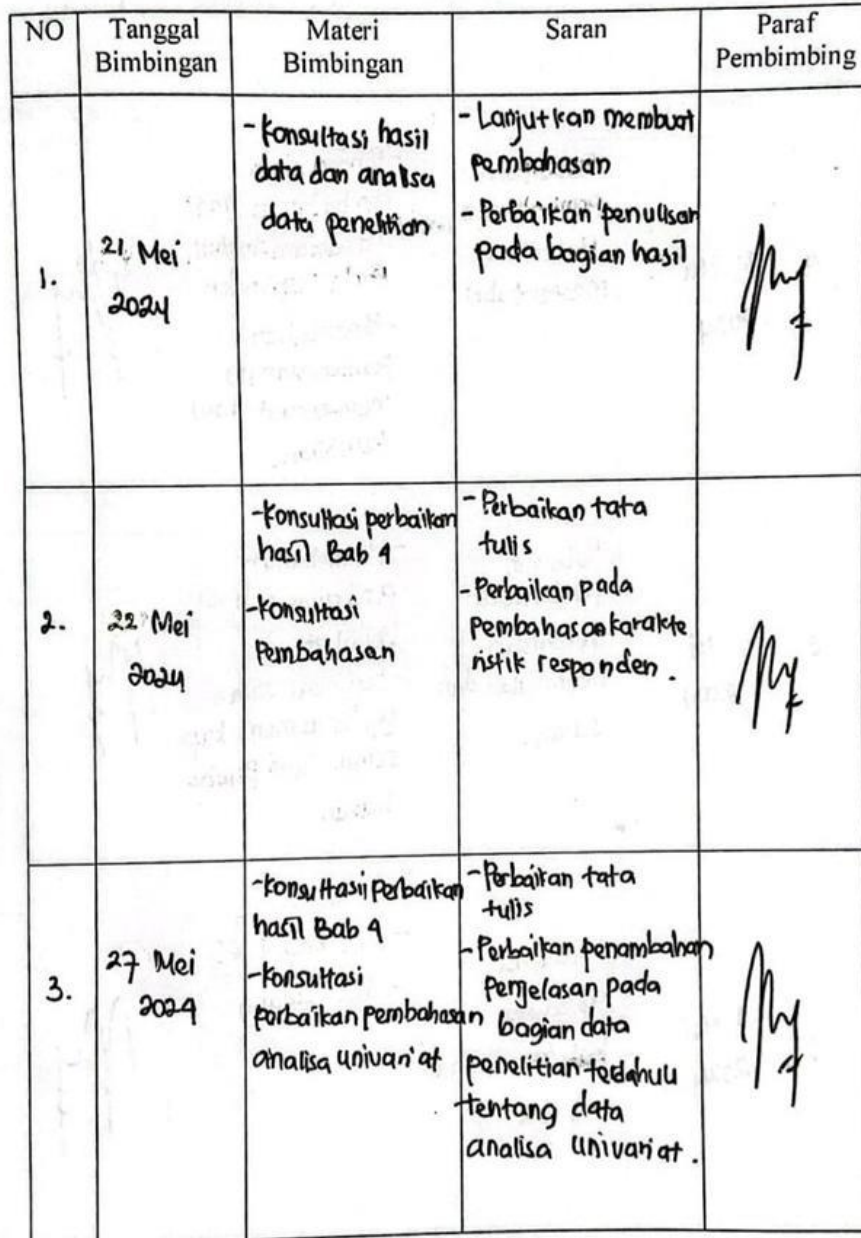 NO
Tanggal
Bimbingan
Materi
Bimbingan
Saran
Paraf
Pembimbing
1.
21 Mei
2024
- Konsultasi hasil
data dan analisa
data penelitian
- Lanjutkan membuat
pembahasan
- Perbaikan penulisan
pada bagian hasil
2.
22 Mei
2024
- Konsultasi perbaikan
hasil Bab 4
- Konsultasi
Pembahasan
- Perbaikan tata
tulis
- Perbaikan pada
Pembahasan karakte
ristik responden.
3.
27 Mei
2024
- Konsultasi Perbaikan
hasil Bab 4
- Konsultasi
perbaikan pembahasan
analisa univariat
- Perbaikan tata
tulis
- Perbaikan penambahan
Penjelasan pada
bagian data
penelitian terdahulu
tentang data
analisa univariat.